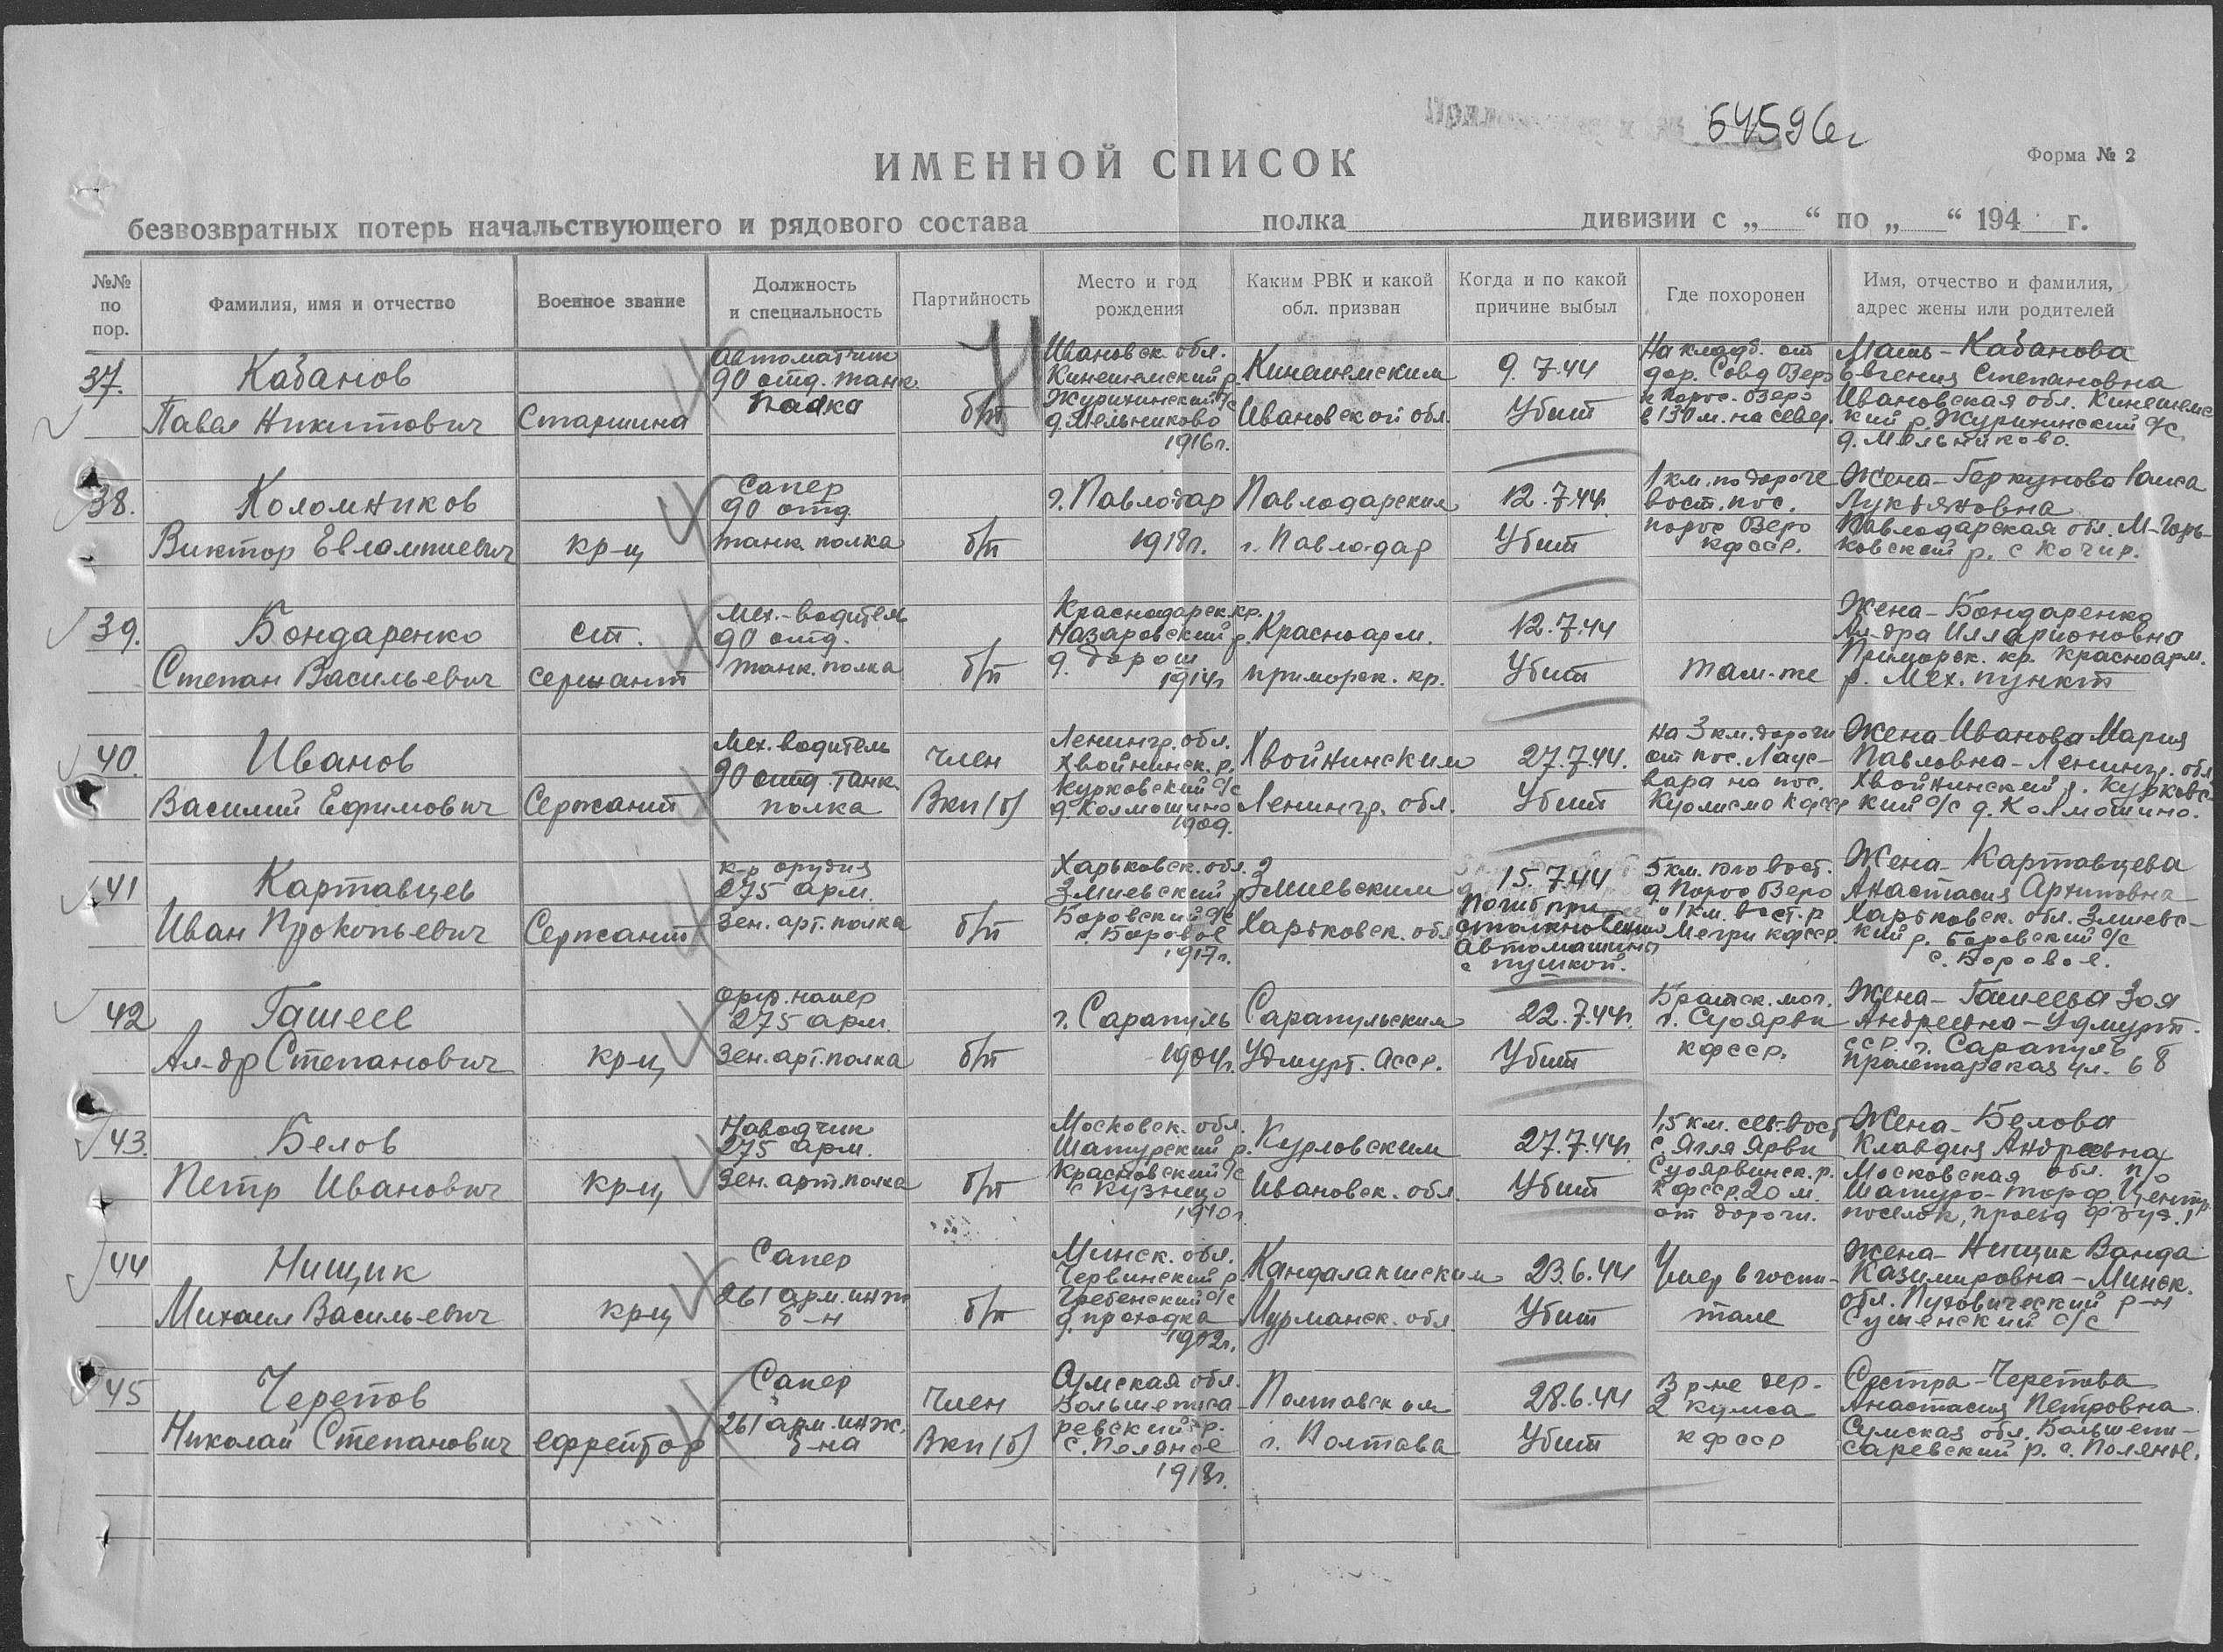 54596с
ИМЕННОЙ СПИСОК
Форма № 2
безвозвратных потерь начальствующего и рядового состава полка дивизии с „ “ по „ “ 194 г.
№№ по пор.
Фамилия, имя и отчество
Военное звание
Должность и специальность
Партийность
Место и год рождения
Каким РВК и какой обл. призван
Когда и по какой причине выбыл
Где похоронен
Имя, отчество и фамилия, адрес жены или родителей
37.
Кабанов
Павел Никитович
Старшина
Автоматчик
90 отд. танк
полка
б/п
Ивановск. обл.
Кинешемский р.
Журихинский с/с
д. Мельниково
1916г.
Кинешемским
Ивановской обл.
9.7.44
Убит
На кладб. от
дор. Совд Озеро
и Порос-Озеро
в 130 м. на север.
Мать-Кабанова
Евгения Степановна
Ивановская обл. Кинешемс
кий р. Журихинский с/с
д. Мельниково.
38.
Коломников
Виктор Евлампиевич
кр-ц
Сапер
90 отд
танк. полка
б/п
г. Павлодар
1918г.
Павлодарским
г. Павлодар
12.7.44г.
Убит
1 км. по дороге
вост. пос.
порос Озеро
кфсср.
Жена-Горкунова Раиса
Лукьяновна
Павлодарская обл. М-Горь-
ковский р. с Кочир.
39.
Бондаренко
Степан Васильевич
ст.
сержант
Мех.-водитель
90 отд.
танк. полка
б/п
Краснодарск. кр.
Назаровский р.
д. Дорош
1914г
Красноарм.
приморск. кр.
12.7.44
Убит
там-же
Жена-Бондаренко
Ал-дра Илларионовна
Приморск. кр. Красноарм.
р. Мех. пункт
40.
Иванов
Василий Ефимович
Сержант
Мех. водитель
90 отд. танк.
полка
член
Вкп(б)
Ленингр. обл.
Хвойнинск. р.
Курковский с/с
д. Колмошино
1909.
Хвойнинским
Ленингр. обл.
27.7.44.
Убит
на 3 км. дороги
от пос. Лаус-
вара на пос.
Куолисма Кфсср
Жена-Иванова Мария
Павловна-Ленингр. обл
Хвойнинский р. Курковс-
кий с/с д. Колмошино.
41
Картавцев
Иван Прокопьевич
Сержант
к-р орудия
275 арм.
зен. арт. полка
б/п
Харьковск. обл.
Змиевский р
Боровский с/с
с. Боровое
1917г.
Змиевским
Харьковск. обл
15.7.44
Погиб при
столкновении
Автомашины
с пушкой.
5 км. юго вост.
д. Порос Озеро
и 1 км. вост. р
Мегри кфсср.
Жена-Картавцева
Анастасия Архиповна
Харьковск. обл. Змиевс-
кий р. Боровский с/с
с. Боровое.
42
Гашеев
Ал-др Степанович
кр-ц
275 арм.
зен. арт. полка
б/п
г. Сарапуль
1904г.
Сарапульским
Удмурт. Асср.
22.7.44г.
Убит
Братск. мог.
г. Суоярви
кфсср.
Жена-Гашеева Зоя
Андреевна-Удмурт.
сср. г. Сарапуль
Пролетарская ул. 68
43.
Белов
Петр Иванович
кр-ц
Наводчик
275 арм.
зен. арт. полка
б/п
Московск. обл.
Шатурский р.
Красновский с/с
с Кузнецо
1910г.
Курловским
Ивановск. обл.
27.7.44г.
Убит
1,5 км. сев-вост
с. Ягля Ярви
Суоярвинск. р.
Кфсср. 20 м.
от дороги.
Жена-Белова
Клавдия Андреевна
Московская обл. п/о
Шатура-торф. Центр.
поселок, проезд
44
Нищик
Михаил Васильевич
кр-ц
Сапер
261 арм. инж
б-н
б/п
Минск. обл.
Червинский р
Гребенский с/с
д. проходка
1902г.
Кандалакшским
Мурманск. обл
23.6.44
Убит
Умер в госпи-
тале
Жена-Нищик Ванда
Казимировна-Минск.
обл. Пуховический р-н
Сушенский с/с
45
Черепов
Николай Степанович
ефрейтор
Сапер
261 арм. инж.
б-на
Член
Вкп(б)
Сумская обл.
Большеписа-
ревский р.
с. Поляное
1918г.
Полтавским
г. Полтава
28.6.44
Убит
В р-не дер.
2 кумса
кфсср
Сестра-Черепова
Анастасия Петровна
Сумская обл. Большепи-
саревский р. с. Поляное.